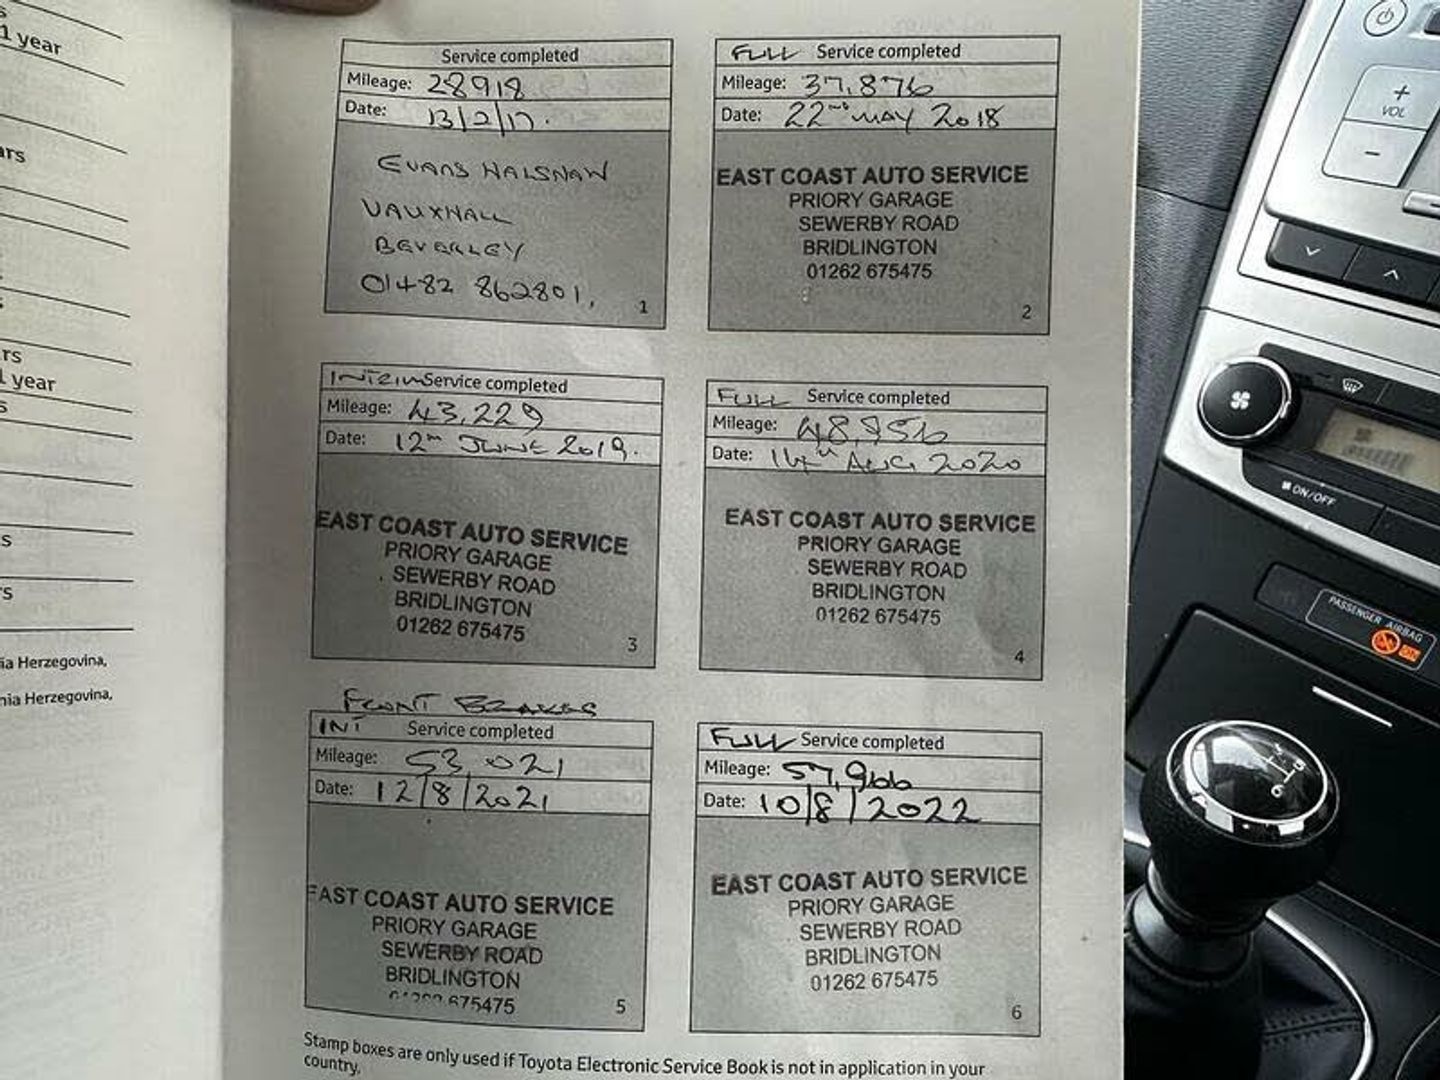 s
1 year
ars
rs
1 year
s
s
s
ia Herzegovina,
nia Herzegovina,
Service completed
Mileage: 28918
Date: 13/2/17.
EVANS HALSHAW
VAUXHALL
BEVERLEY
01482 862801,
1
FULL Service completed
Mileage: 37,876
Date: 22nd MAY 2018
EAST COAST AUTO SERVICE
PRIORY GARAGE
SEWERBY ROAD
BRIDLINGTON
01262 675475
2
INTERIM Service completed
Mileage: 43,229
Date: 12th JUNE 2019.
EAST COAST AUTO SERVICE
PRIORY GARAGE
SEWERBY ROAD
BRIDLINGTON
01262 675475
3
FULL Service completed
Mileage:
Date: 14th AUG 2020
EAST COAST AUTO SERVICE
PRIORY GARAGE
SEWERBY ROAD
BRIDLINGTON
01262 675475
4
FRONT BRAKES
INT Service completed
Mileage: 53,021
Date: 12/8/2021
EAST COAST AUTO SERVICE
PRIORY GARAGE
SEWERBY ROAD
BRIDLINGTON
675475
5
FULL Service completed
Mileage: 57,966
Date: 10/8/2022
EAST COAST AUTO SERVICE
PRIORY GARAGE
SEWERBY ROAD
BRIDLINGTON
01262 675475
6
Stamp boxes are only used if Toyota Electronic Service Book is not in application in your
country.
+
VOL
-
ON/OFF
PASSENGER AIRBAG
ON